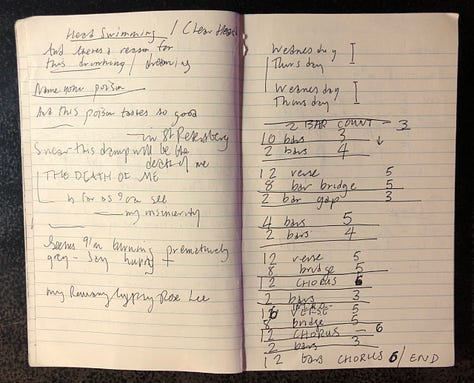 Head Swimming / Clear Head
And there's a reason for
this drinking / dreaming
Name your poison
And this poison tastes so good
in St Petersburg
Swear this damp will be the
death of me
THE DEATH OF ME
is far as I can see
my insincerity
Seems I'm turning prematurely
grey - Say
my Runaway Gypsy Rose Lee
Wednesday
Thursday
Wednesday
Thursday
2 BAR COUNT - 3
10 bars 3
2 bars 4
12 verse 5
8 bar bridge 5
2 bar gap 3
4 bars 5
2 bars 4
12 verse 5
8 bridge 5
12 CHORUS 6
2 bars 3
VERSE 5
8 bridge 5
12 CHORUS - 6
2 bars 3
12 bars CHORUS 6 / END